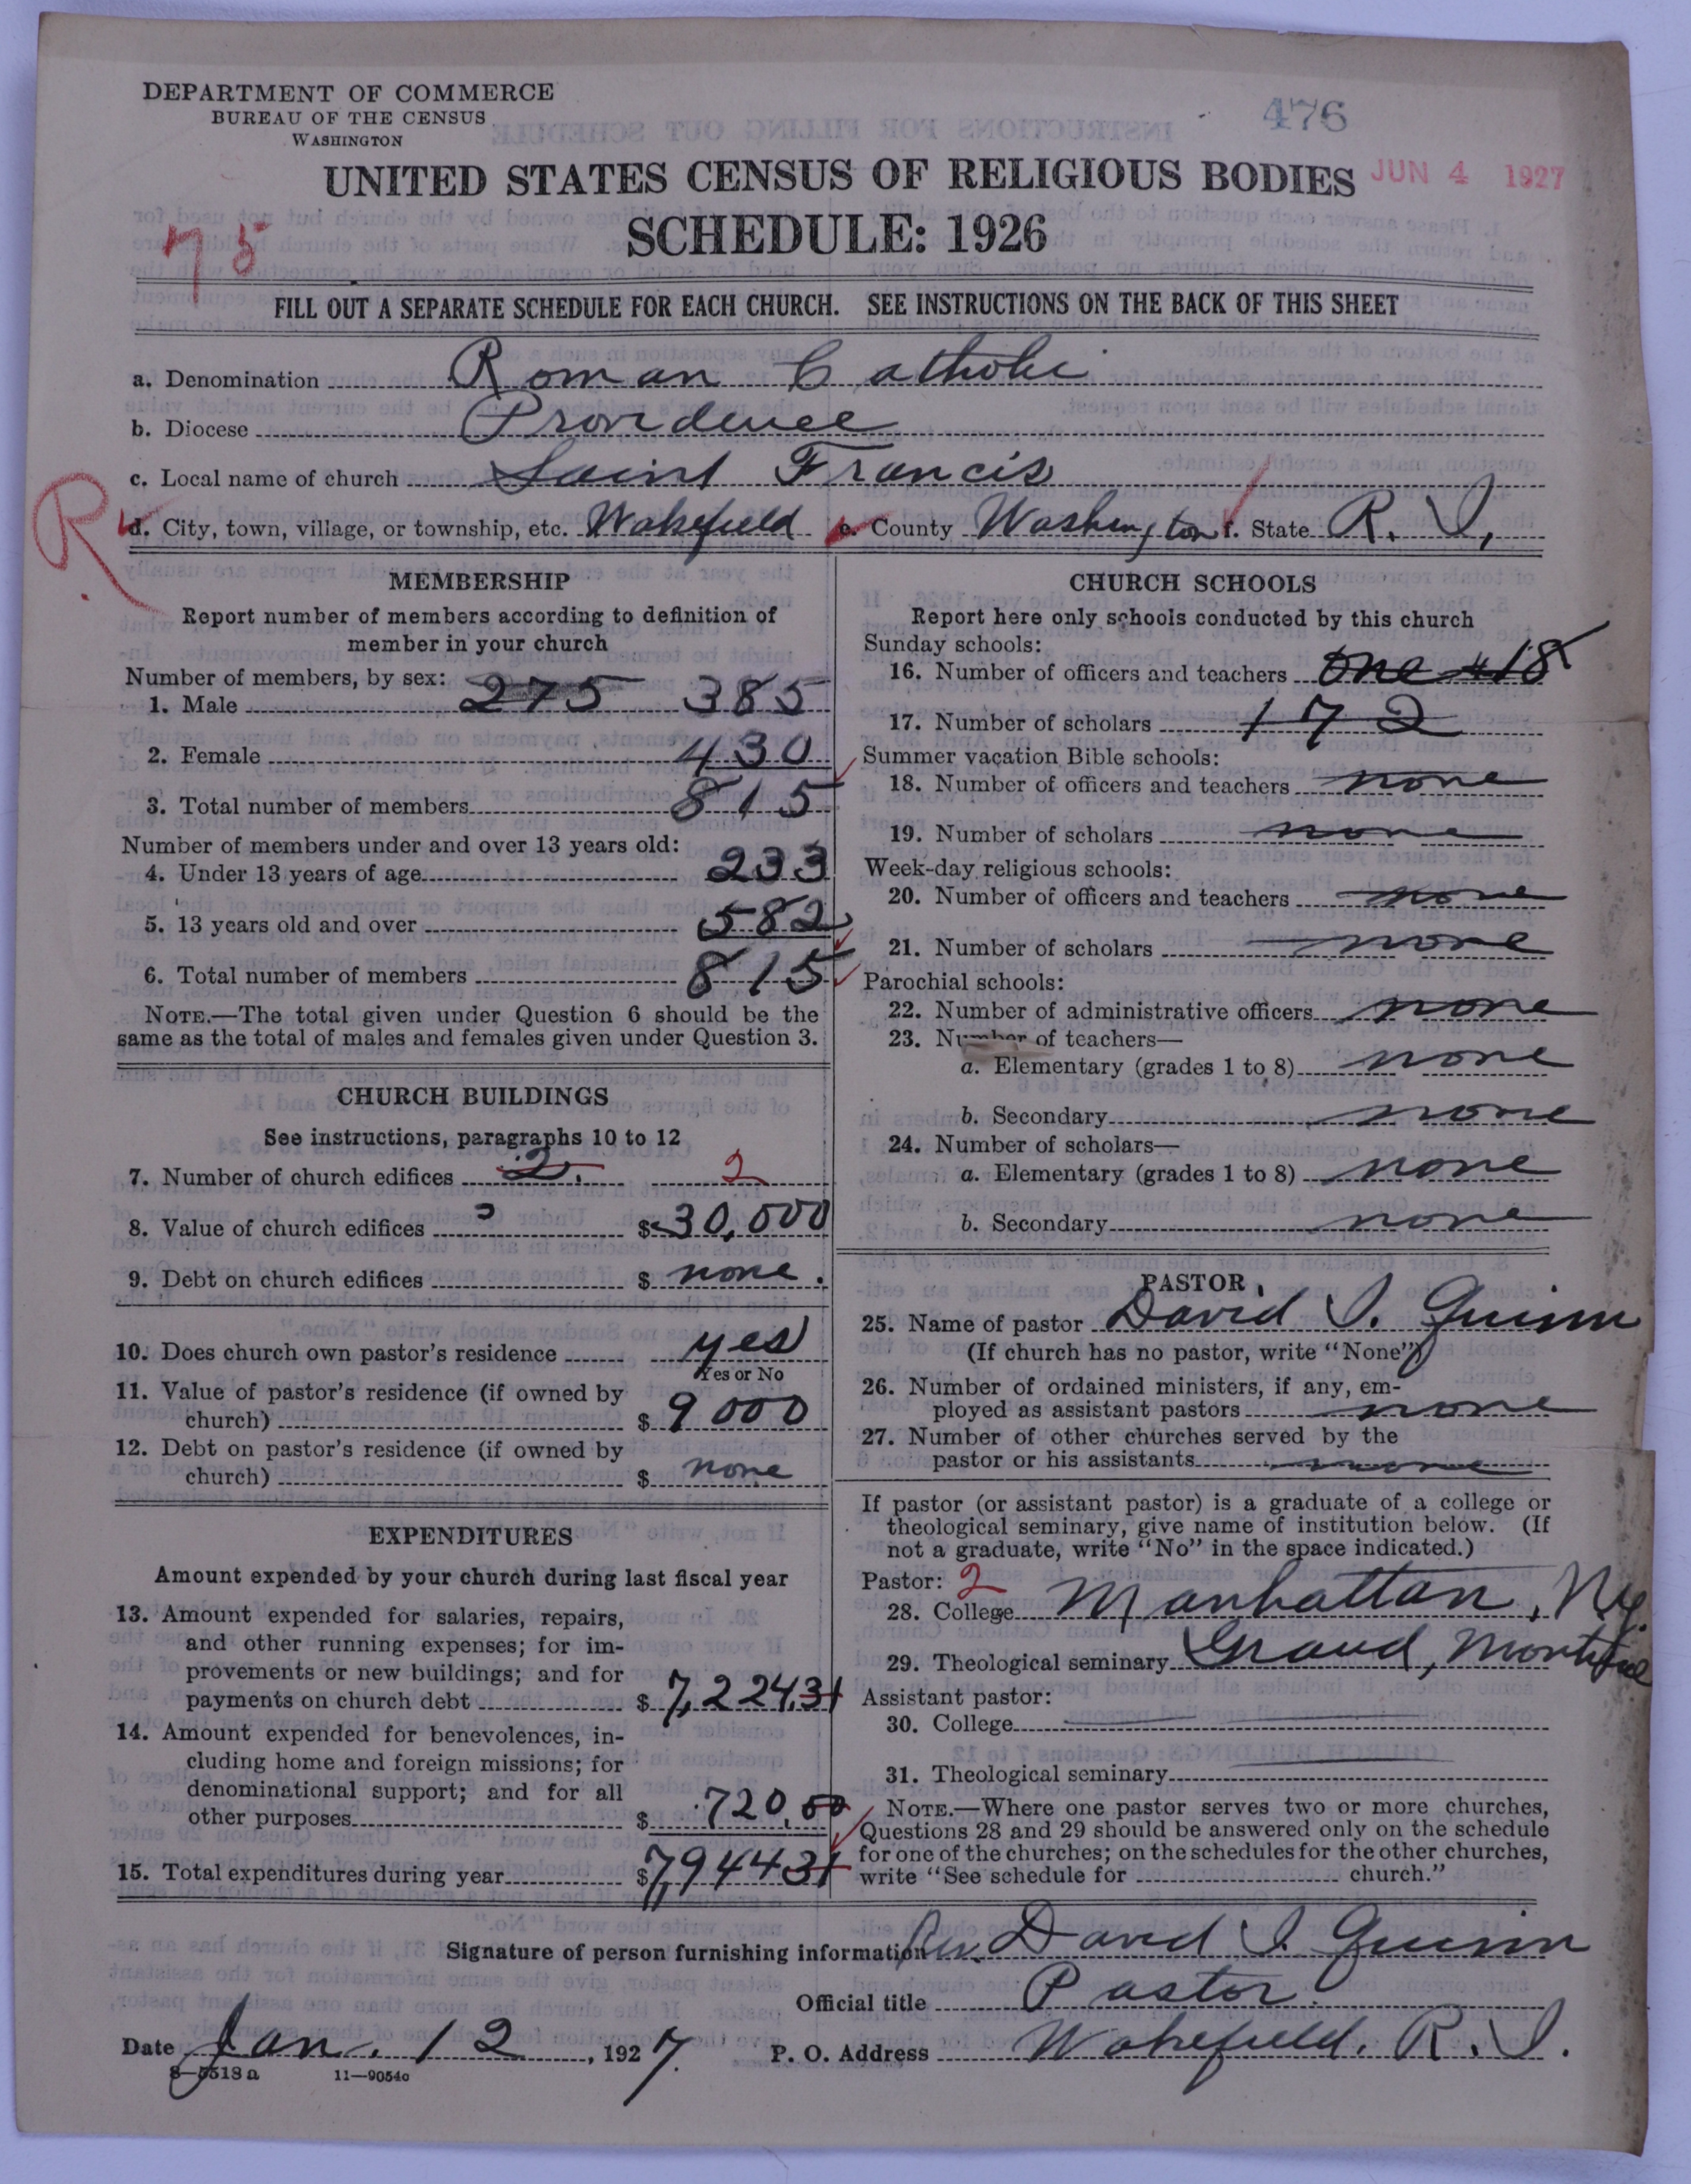 DEPARTMENT OF COMMERCE
BUREAU OF THE CENSUS
WASHINGTON
476
UNITED STATES CENSUS OF RELIGIOUS BODIES
JUN 4 1927
SCHEDULE: 1926
75
FILL OUT A SEPARATE SCHEDULE FOR EACH CHURCH. SEE INSTRUCTIONS ON THE BACK OF THIS SHEET
a. Denomination Roman Catholic
b. Diocese Providence
c. Local name of church Saint Francis
R
d. City, town, village, or township, etc. Wakefield e. County Washington f. State R. I.
MEMBERSHIP
Report number of members according to definition of
member in your church
Number of members, by sex:
1. Male 275 385
2. Female 430
3. Total number of members 815
Number of members under and over 13 years old:
4. Under 13 years of age 233
5. 13 years old and over 582
6. Total number of members 815
NOTE.—The total given under Question 6 should be the
same as the total of males and females given under Question 3.
CHURCH BUILDINGS
See instructions, paragraphs 10 to 12
7. Number of church edifices 2. 2
8. Value of church edifices $30,000
9. Debt on church edifices $ none.
10. Does church own pastor's residence yes
Yes or No
11. Value of pastor's residence (if owned by
church) $ 9000
12. Debt on pastor's residence (if owned by
church) $ none
EXPENDITURES
Amount expended by your church during last fiscal year
13. Amount expended for salaries, repairs,
and other running expenses; for im-
provements or new buildings; and for
payments on church debt $7,224.31
14. Amount expended for benevolences, in-
cluding home and foreign missions; for
denominational support; and for all
other purposes $ 720.00
15. Total expenditures during year $7944.31
CHURCH SCHOOLS
Report here only schools conducted by this church
Sunday schools:
16. Number of officers and teachers one #18
17. Number of scholars 172
Summer vacation Bible schools:
18. Number of officers and teachers none
19. Number of scholars none
Week-day religious schools:
20. Number of officers and teachers none
21. Number of scholars none
Parochial schools:
22. Number of administrative officers none
23. Number of teachers—
a. Elementary (grades 1 to 8) none
b. Secondary none
24. Number of scholars—
a. Elementary (grades 1 to 8) none
b. Secondary none
PASTOR
25. Name of pastor David I. Quinn
(If church has no pastor, write "None")
26. Number of ordained ministers, if any, em-
ployed as assistant pastors none
27. Number of other churches served by the
pastor or his assistants none
If pastor (or assistant pastor) is a graduate of a college or
theological seminary, give name of institution below. (If
not a graduate, write "No" in the space indicated.)
Pastor: 2
28. College Manhattan, Ny
29. Theological seminary Grand,
Assistant pastor:
30. College
31. Theological seminary
NOTE.—Where one pastor serves two or more churches,
Questions 28 and 29 should be answered only on the schedule
for one of the churches; on the schedules for the other churches,
write "See schedule for church."
Signature of person furnishing information Rev. David I Quinn
Official title Pastor.
Date Jan. 12, 1927. P. O. Address Wakefield. R. I.
8—5518a 11—9054c